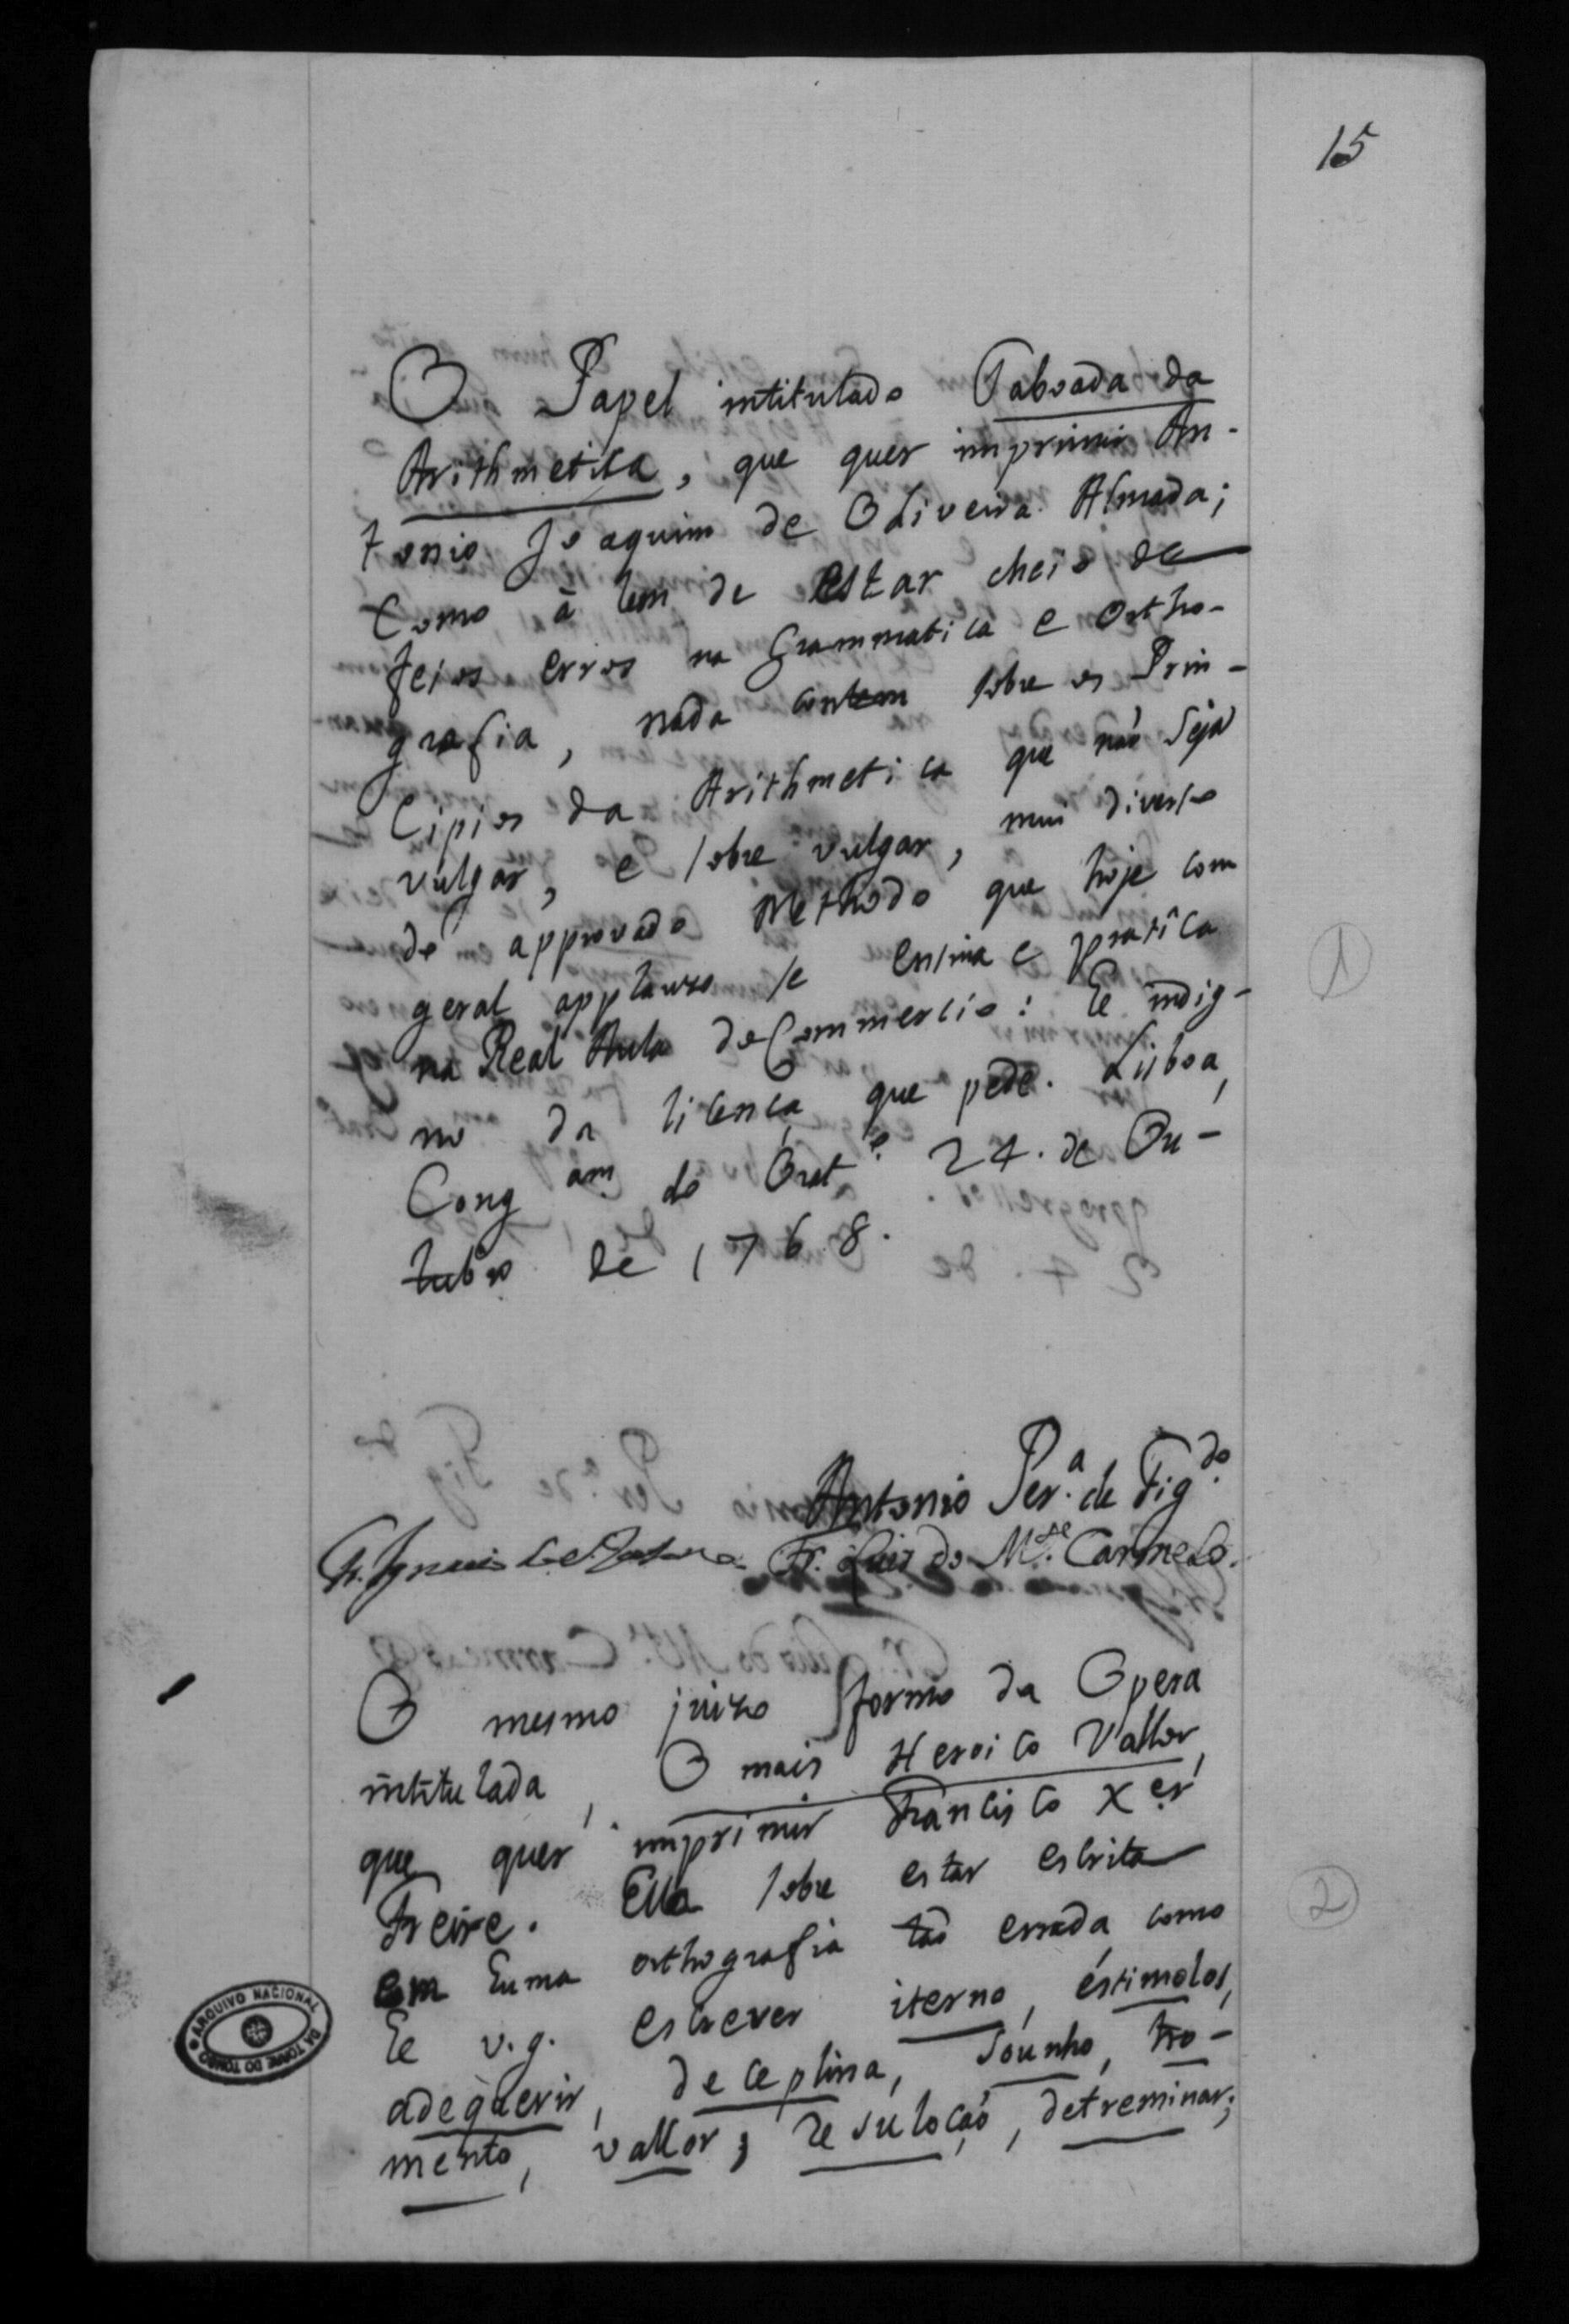 15
O Papel intitulado Taboada da
Arithmetica, que quer imprimir An-
tonio Joaquim de Oliveira Almada;
como à lem de estar cheio de
feios erros na Grammatica e Ortho-
grafia, nada contem sobre os Prin-
cipios da Arithmetica que naõ seja
vulgar, e sobre vulgar, mui diverso
do approvado Methodo que hoje com
geral applauso se ensina e pratîca
na Real Aula do Commercio: he indig-
no da licença que pede. Lisboa,
Cong.am do Orat.o 24. de Ou-
tubro de 1768.
Antonio Per.a de Fig.do
Fr. Luis do M.te Carmelo.
O mesmo juizo formo da Opera
intitulada, O mais Heroico Vallor,
que quer imprimir Francisco X.er
Freire. Ella sobre estar escrita
em huma orthografia taõ errada como
he v.g. escrever iterno, éstimolos,
adequerir, deceplina, sounho, tro-
mento, vallor, resuloçaõ, detreminar;
1
2
ARQUIVO NACIONAL
DA TORRE DO TOMBO